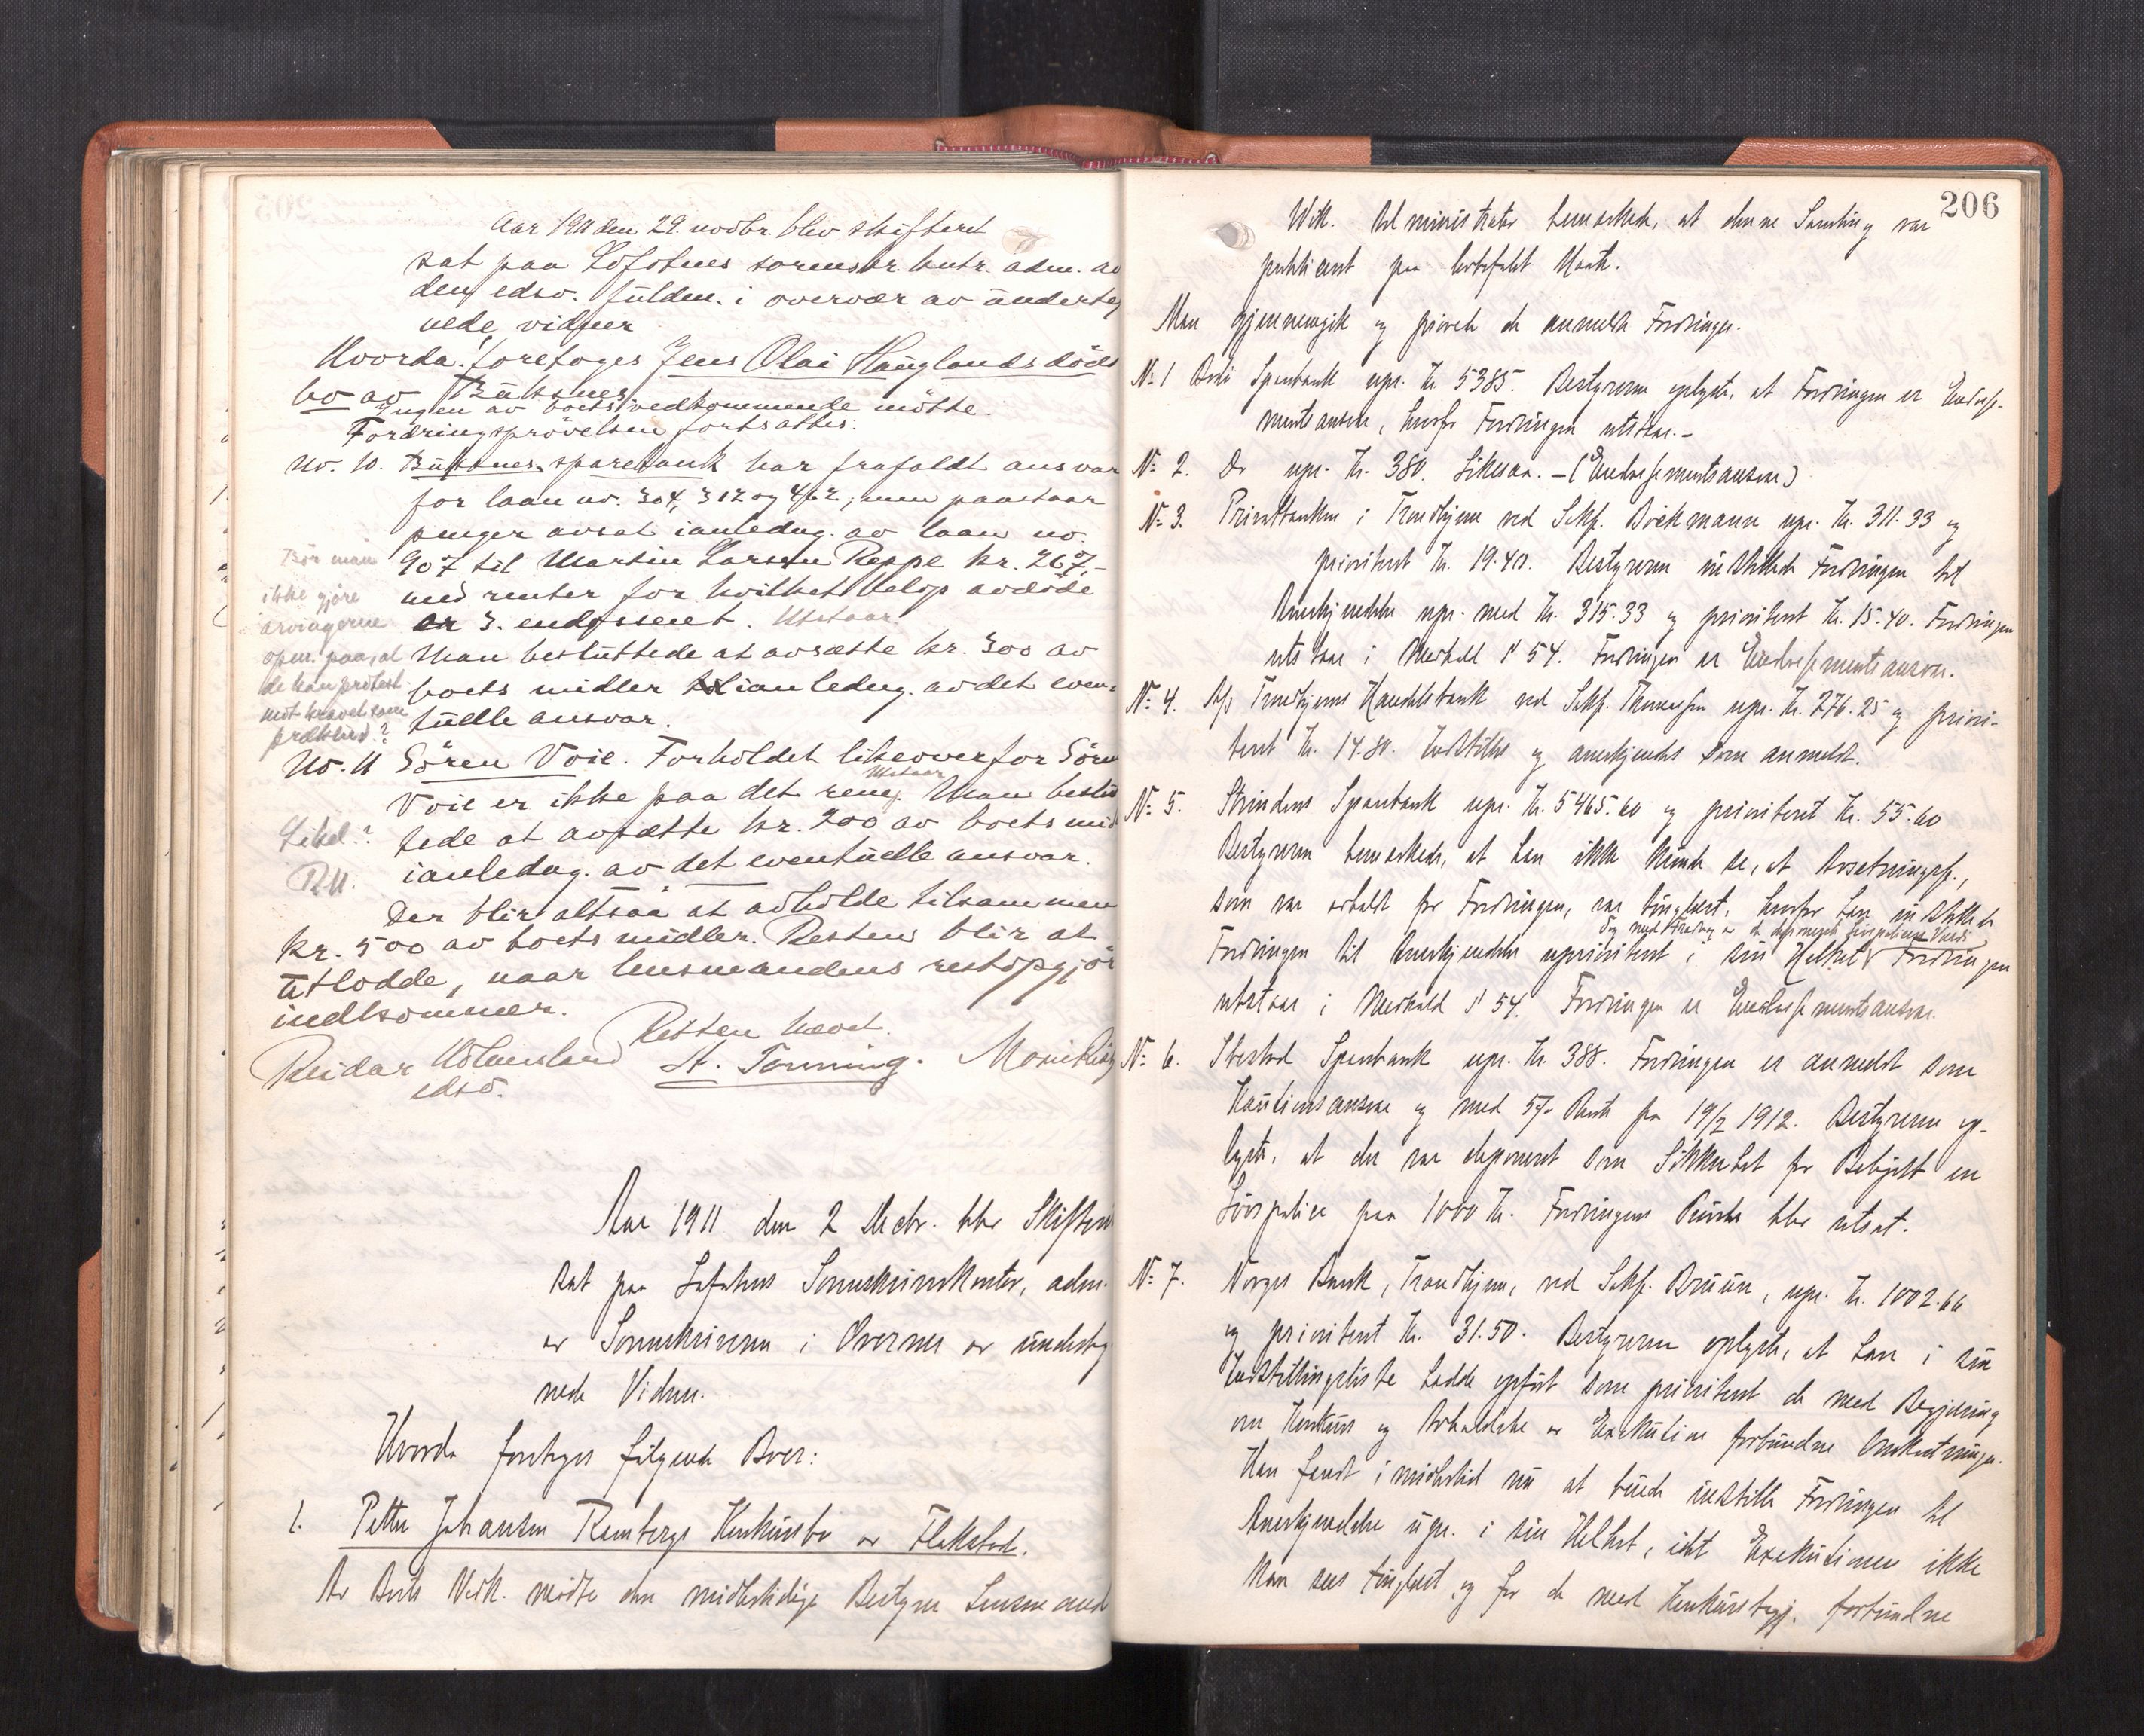 Aar 1911 den 29. novbr. blev skifteret
sat paa Lofotens sorenskr. kntr. adm. av
den edsv. fuldm. i overvær av underteg
nede vidner
Hvorda: foretoges Jens Olai Hauglands döds
bo av Buksnes
Ingen av boets vedkommende mötte.
Fordringsprövelsen fortsattes:
No. 10. Buksnes sparebank har frafaldt ansvar
for laan no. 304, 312 og 462, men paastaar
penger avsat i anledng. av laan no.
907 til Martin Larsen Reppe kr. 267,-
med renter for hvilket belöp avdöde
er 3. endossent. Utstaar.
Man besluttede at avsætte kr. 300 av
boets midler i anledng. av det even-
tuelle ansvar.
Bör man
ikke gjöre
arvingerne
opm. paa, at
de kan protest.
mot kravet som
præklud.?
No. 11 Sören Voie. Forholdet likeoverfor Sören
Utstaar
Voie er ikke paa det rene. Man beslut
tede at avsætte kr. 200 av boets mid
i anledng. av det eventuelle ansvar.
Likel?
R.U.
Der blir altsaa at avholde tilsammen
kr. 500 av boets midler. Resten blir at
utlodde, naar lensmandens restopgjör
indkommer.
Retten hævet.
Reidar Holmesland
edsv.
St. Tonning.
Aar 1911 den 2 Decbr. blev Skifteret
sat paa Lofotens Sorenskriverkontor, adm.
av Sorenskriveren i Overvær av underteg
nede Vidner.
Hvorda foretoges følgende Boer:
1. Petter Johansen Rambergs Konkursbo av Flakstad.
Av Boets Vedk. mødte den midlertidige Bestyrer Lensmand
206
Wik. Administrator bemerket, at denne Samling var
publiceret paa lovbefalt Maate.
Man gjennemgik og prøvet de anmeldte Fordringer.
No 1 Bodø Sparebank upr. Kr. 5385. Bestyreren oplyste, at Fordringen er Endosse-
mentsansvar, hvorfor Fordringen utstaar.-
No 2. Do upr. Kr. 380. Likesaa. - (Endossementsansvar)
No 3. Privatbanken i Trondhjem ved Sakf. Bøckmann upr. Kr. 311.33 og
prioritert Kr. 19.40. Bestyreren indstillede Fordringen til
Anerkjendelse upr. med Kr. 315.33 og prioritert Kr. 15.40. Fordringen
utstaar i Medhold § 54. Fordringen er Endossementsansvar.
No 4. A/s Trondhjems Handelsbank ved Sakf. Thomessen upr. Kr. 276.25 og priori-
teret Kr. 14.80. Indstilles og anerkjendes som anmeldt.
No 5. Strindens Sparebank upr. Kr. 5465.60 og prioriteret Kr. 55.60
Bestyreren bemerkede, at han ikke kunde se, at Avsetningsf.,
som var avholdt for Fordringen, var tinglyst, hvorfor han indstillede
Fordringen til Anerkjendelse uprioritert i sin Helhet Fordringen
utstaar i Medhold § 54. Fordringen er Endossementsansvar.
No 6. Ibestad Sparebank upr. Kr. 388. Fordringen er anmeldt som
Kautionsansvar og med 5% Rente fra 19/2 1912. Bestyreren op-
lyste, at der var deponeret som Sikkerhet for Beløpet en
Livspolice paa 1000 Kr. Fordringens Prøvelse blev utsat.
No 7. Norges Bank, Trondhjem, ved Sakf. Bruun, upr. Kr. 1002.66
og prioritert Kr. 31.50. Bestyreren oplyste, at han i sin
Indstillingsliste hadde opført som prioritert de med Begjæring
om Konkurs og Avholdelse av Exekution forbundne Omkostninger.
Han fandt imidlertid nu at burde indstille Fordringen til
Anerkjendelse upr. i sin Helhet, idet Exekutionen ikke
kan sees tinglyst, og for de med Konkursbegj. forbundne